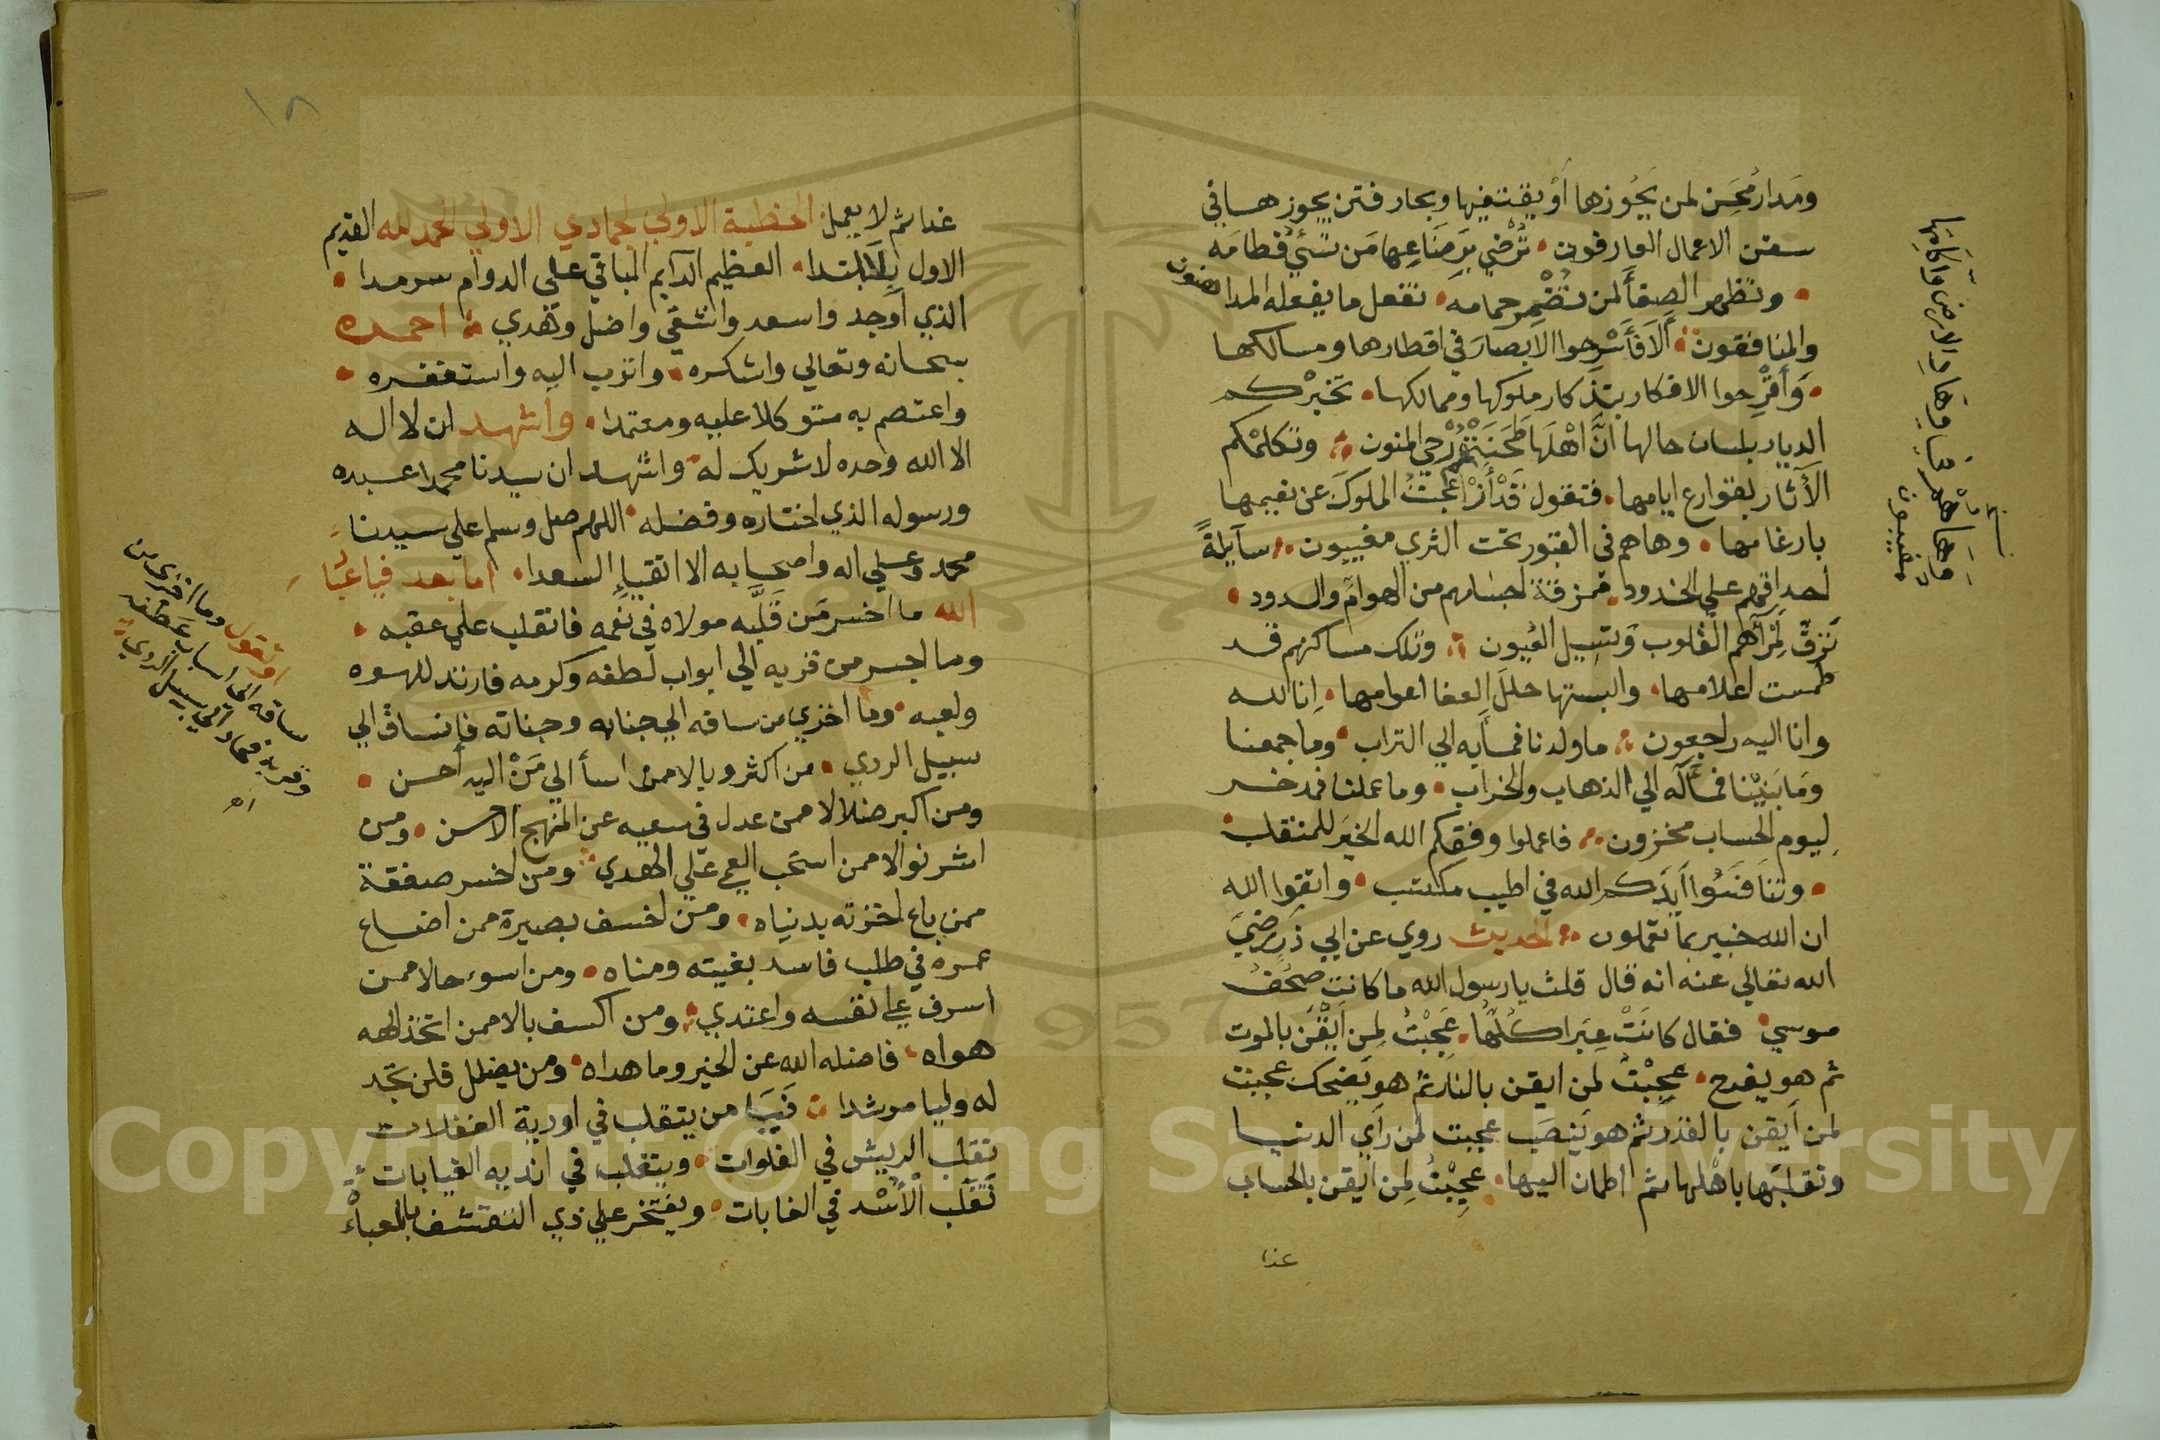 ومَدارمُحَن لمن يَجُوزها أوْيقتفيها وبحار فتن يجوزها في
سفن الاعمال العارفون • تُرْضي بِرَضَاعِها مَن نسَي فطامَه
• وتظهر الصفأَ لمن تُضْمِر حِمامه • تفعل ما يفعله المداهنون
والمنافقون ؞ ألاَ فَأَسْرِحوا الابصارَ في اقطارها ومسالكها
• وَأَقْرِحوا الافكار بتذكار ملوكها وممالكها • تخبرْكم
الديار بلسان حالها انَّ اَهْلَها طَحَنَتْهُمْ رحي المنون ؞ وتكلمْكم
الآثار بقوارع ايامها • فتقول قَدْ أزْعَجتُ الملوكَ عن نعيمها
بارغامها • وهاهم في القبور تحت الثري مغيبون ؞ سآيلةً
احداقهم علي الخدود • ممزقة اجسامهم من الهوام والدود •
تَرِقّ لمَرْآهم القلوب وَتسيل العُيون ؞ وتلك مساكنهم قد
طمست اعلامها • والبستها حللَ العفا اعوامها • اِنا لله
وانا اليه راجعون ؞ ما ولدنا فمأبه الي التراب • وما جمعنا
ومَا بَنَيْنا فمأَله الي الذهاب والخراب • وما عملنا فمدخر
ليوم الحساب مخزون ؞ فاعملوا وفقكم الله الخيَر للمنقلب
• وتَنَافَسُوا أيَّدكم الله في اطيب مكتسب • واتقوا الله
ان الله خبير بما تعملون ؞ الحديث روي عن ابي ذر رضيَ
الله تعالي عنه انه قال قلت يا رسول الله ما كانت صحُفُ
موسي • فقال كانَتْ عِبَرا كلُّها • عَجِبْتُ لمن اَيْقَن بالموت
ثم هو يفرح • عَجِبْتُ لمن ايقن بالنار ثم هو يَضحك عجبت
لمن اَيقن بالقدَر ثم هو يَنصَب عجبت لمن رَأَي الدنيا
وتقلبَها باَهْلها ثم اطمان اليها • عجِبْتُ لمن ايقن بالحساب
غدا
١٨
غدا ثم لا يعمل الخطبة الاولي لجمادي الاولي الحمد لله القديم
الاول بِلاَ ابتدا • العظيم الدآيم الباقي علي الدوام سرمدا •
الذي اَوجد واسعد واشقي واضل وهدي ؞ احمده
سبحانه وتعالي واشكره • واتوب اليه واستغفره •
واعتصم به متوكلا عليه ومعتمدا • واشهد ان لا اله
الا الله وحده لا شريك له واشهد ان سيدنا محمدا عبده
ورسوله الذي اختاره وفضله • اللهم صل وسلم علي سيدنا
محمد وعلي اله واصحابه الاتقيإ السعدا • اما بعد فيا عبُاَد
الله ما اخسر مَن قَلَّبه مولاه في نعمه فانقلب علي عقبه •
وما اجسر من قربه الي ابواب لطفه وكرمه فارتد للهوه
ولعبه • وما اخزي من ساقه الي جنابه وجناته فانساق الي
سبيل الردي • من اكثر وبالا ممن اسأ الي مَنْ اليه أحسن •
ومن اكبر ضلالا ممن عدل في سعيه عن المنهج الاحسن • ومن
اشر نوالا ممن استحب العمي علي الهدي ؞ ومن اخسر صفقة
ممن باع اخرته بدنياه • ومن اخسف بصيرة ممن اضاع
عمره في طلب فاسد بغيته ومناه • ومن اسوء حالا ممن
اسرف علي نفسه واعتدي ؞ ومن اكسف بالا ممن اتخذ الهه
هواه • فاضله الله عن الخير وما هداه • ومن يضلل فلن تجد
له وليا مرشدا ؞ فَيَا من يتقلب في اودية الغفلات
تقَلب الريش في الفلوات • ويتغلب في انديه الغيابات
تَغَلّب الْأسْد في الغابات • ويفتخر علي ذوي التقشف بالعبأ
او تقول وما اخزي من
ساقه الي اسباب عطفه
وقربه فماد الي سبيل الردي
اه